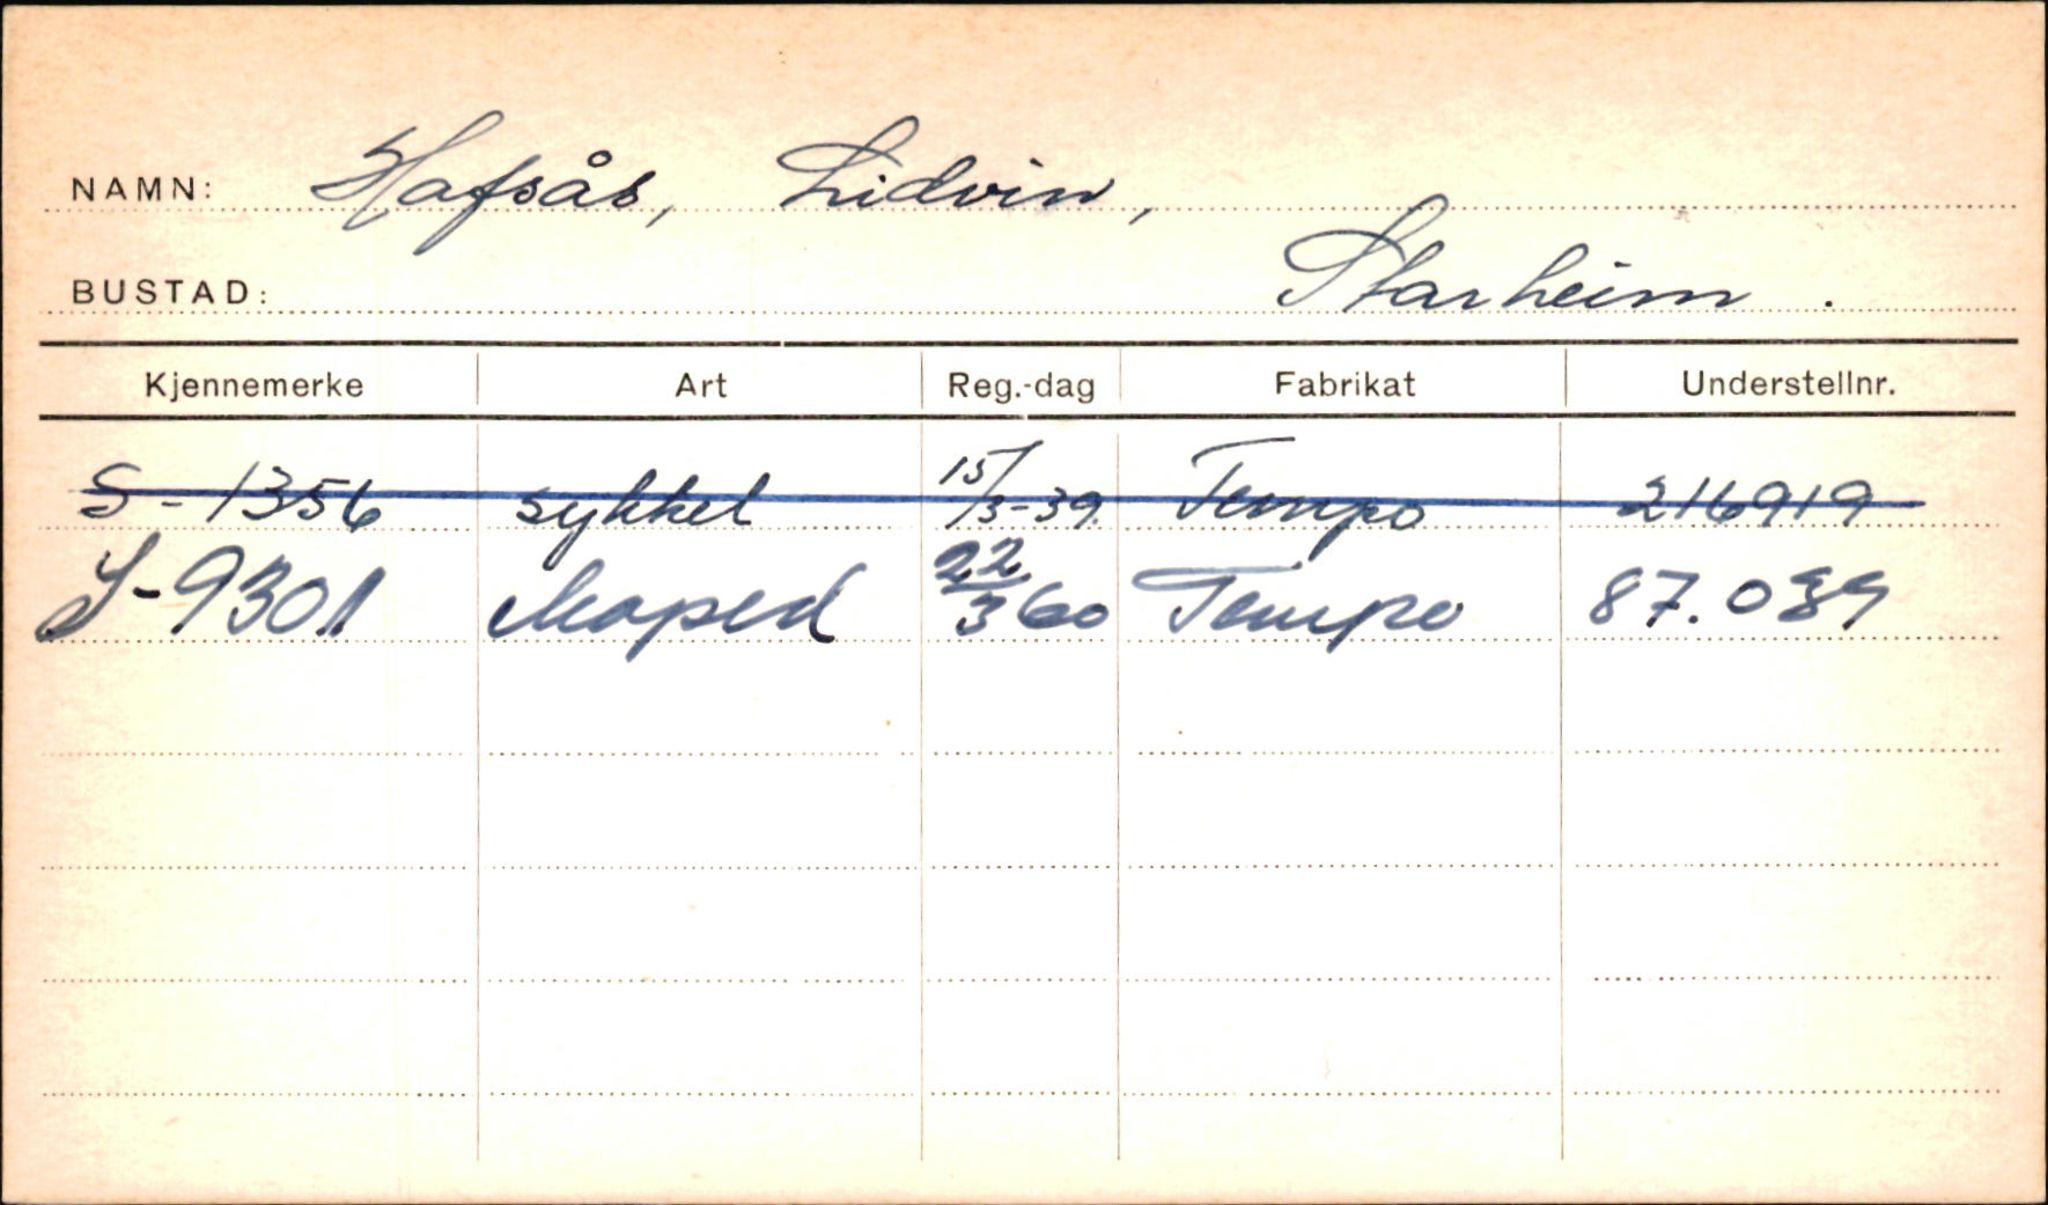 NAMN: Hafsås, Lidvin,
BUSTAD: Starheim.
Kjennemerke Art Reg.-dag Fabrikat Understellnr.
S-1356 sykkel 15/3-39. Tempo 216919
S-9301 Moped 22/3 60 Tempo 87.089